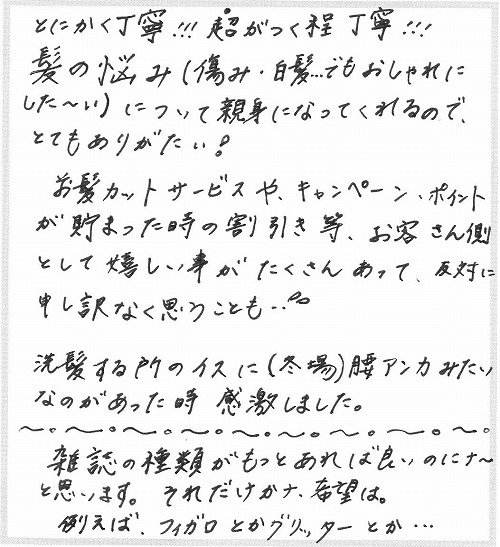 とにかく丁寧!!! 超がつく程 丁寧!!!
髪の悩み(傷み・白髪…でもおしゃれに
した〜い)について親身になってくれるので、
とてもありがたい!
お髪カットサービスや、キャンペーン、ポイント
が貯まった時の割引き等、お客さん側
として嬉しい事がたくさんあって、反対に
申し訳なく思うことも…。
洗髪する所のイスに(冬場)腰アンカみたい
なのがあった時 感激しました。
雑誌の種類がもっとあれば良いのにナ〜
と思います。それだけかナ、希望は。
例えば、フィガロとかグリッターとか…